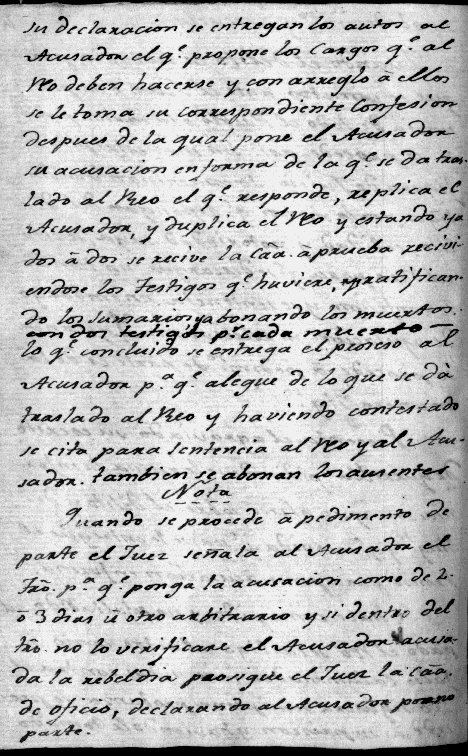 su declaracion se entregan los autos al
Acusador el q.e propone los Cargos q.e al
Reo deben hacerse y con arreglo a ellos
se le toma su correspondiente Confesion
despues de la qual pone el Acusador
su acusacion en forma de la q.e se da tras-
lado al Reo el q.e responde, replica el
Acusador, y duplica el Reo y estando ya
dos â dos se recive la Cãa. â prueba recivi-
endose los Testigos q.e huviere, ratifican-
do los sumarios y abonando los muertos.
con dos testigos p.r cada muerto
lo q.e concluido se entrega el proceso al
Acusador p.a q.e alegue de lo que se dà
traslado al Reo y haviendo contestado
se cita para sentencia al Reo y al Acu-
sador. tambien se abonan los ausentes
Nota
Quando se procede â pedimento de
parte el Juez señala al Acusador el
Trõ. p.a q.e ponga la acusacion como de 2.
ô 3 dias û otro arbitrario y si dentro del
trõ. no lo verificare el Acusador acusa-
da la rebeldia prosigue el Juez la cãa.
de oficio, declarando al Acusador por no
parte.